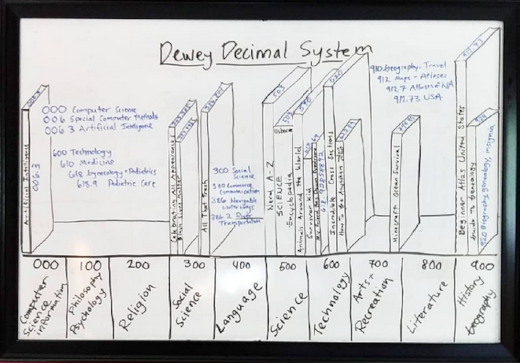 Dewey Decimal System
000 Computer Science
006 Special Computer Methods
006.3 Artificial Intelligence
600 Technology
610 Medicine
618 Gynecology + Pediatrics
618.9 Pediatric Care
300 Social
Science
380 Commerce
Communication
386 Navigable
Waterways
386.2
Transportation
910 Geography, Travel
912 Maps - Atlases
912.7 Atlases
912.73 USA
Artificial Intelligence
006.3
Celebrating
All That Trash
Nerdy A-Z
Usborne
SCIENCE
Encyclopedia
Animals Around the World
Survivor Kid
Incredible Cross Sections
How to Be Anywhere
Minecraft Ocean Survival
Beginner Atlas United States
Guide to Genealogy
920 Biography, Genealogy, Insignia
000
100
200
300
400
500
600
700
800
900
Computer
Science
Information
Philosophy
Psychology
Religion
Social
Science
Language
Science
Technology
Arts +
Recreation
Literature
History
Geography